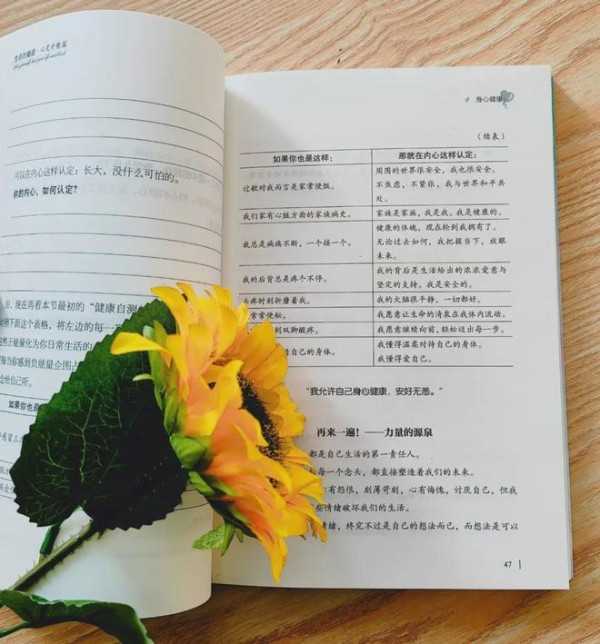 可以在内心这样认定：长大，没什么可怕的。
你的内心，如何认定？
现在再看本节最初的“健康自测
这个表格，将左边的每一
量化为你日常生活的
当你感到负能量企图占
念给自己听。
如果你也是
身心健康
（续表）
如果你也是这样：
那就在内心这样认定：
过敏对我而言是家常便饭。
周围的世界很安全，我也很安全。
不焦虑，不紧张，我与世界和平共
处。
我们家有心脏方面的家族病史。
家族是家族，我是我。我是健康的。
我总是病痛不断，一个接一个。
健康的体魄，现在轮到我拥有了。
无论过去如何，我把握当下，放眼
未来。
我的后背总是疼个不停。
我的背后是生活给出的浓浓爱意与
坚定的支持。我是安全的。
头疼时刻折磨着我。
我的大脑很平静，一切都好。
常常便秘。
我愿意让生命的清泉在我体内流动。
到双脚酸疼。
我愿意继续向前，轻松迈出每一步。
着自己的身体。
我懂得温柔对待自己的身体。
我懂得爱自己。
“我允许自己身心健康，安好无恙。”
再来一遍！——力量的源泉
都是自己生活的第一责任人。
每一个念头，都直接塑造着我们的未来。
有怨恨，刻薄苛刻，心有悔愧，讨厌自己，但我
些情绪破坏我们的生活。
情绪，终究不过是自己的想法而已，而想法是可以
47